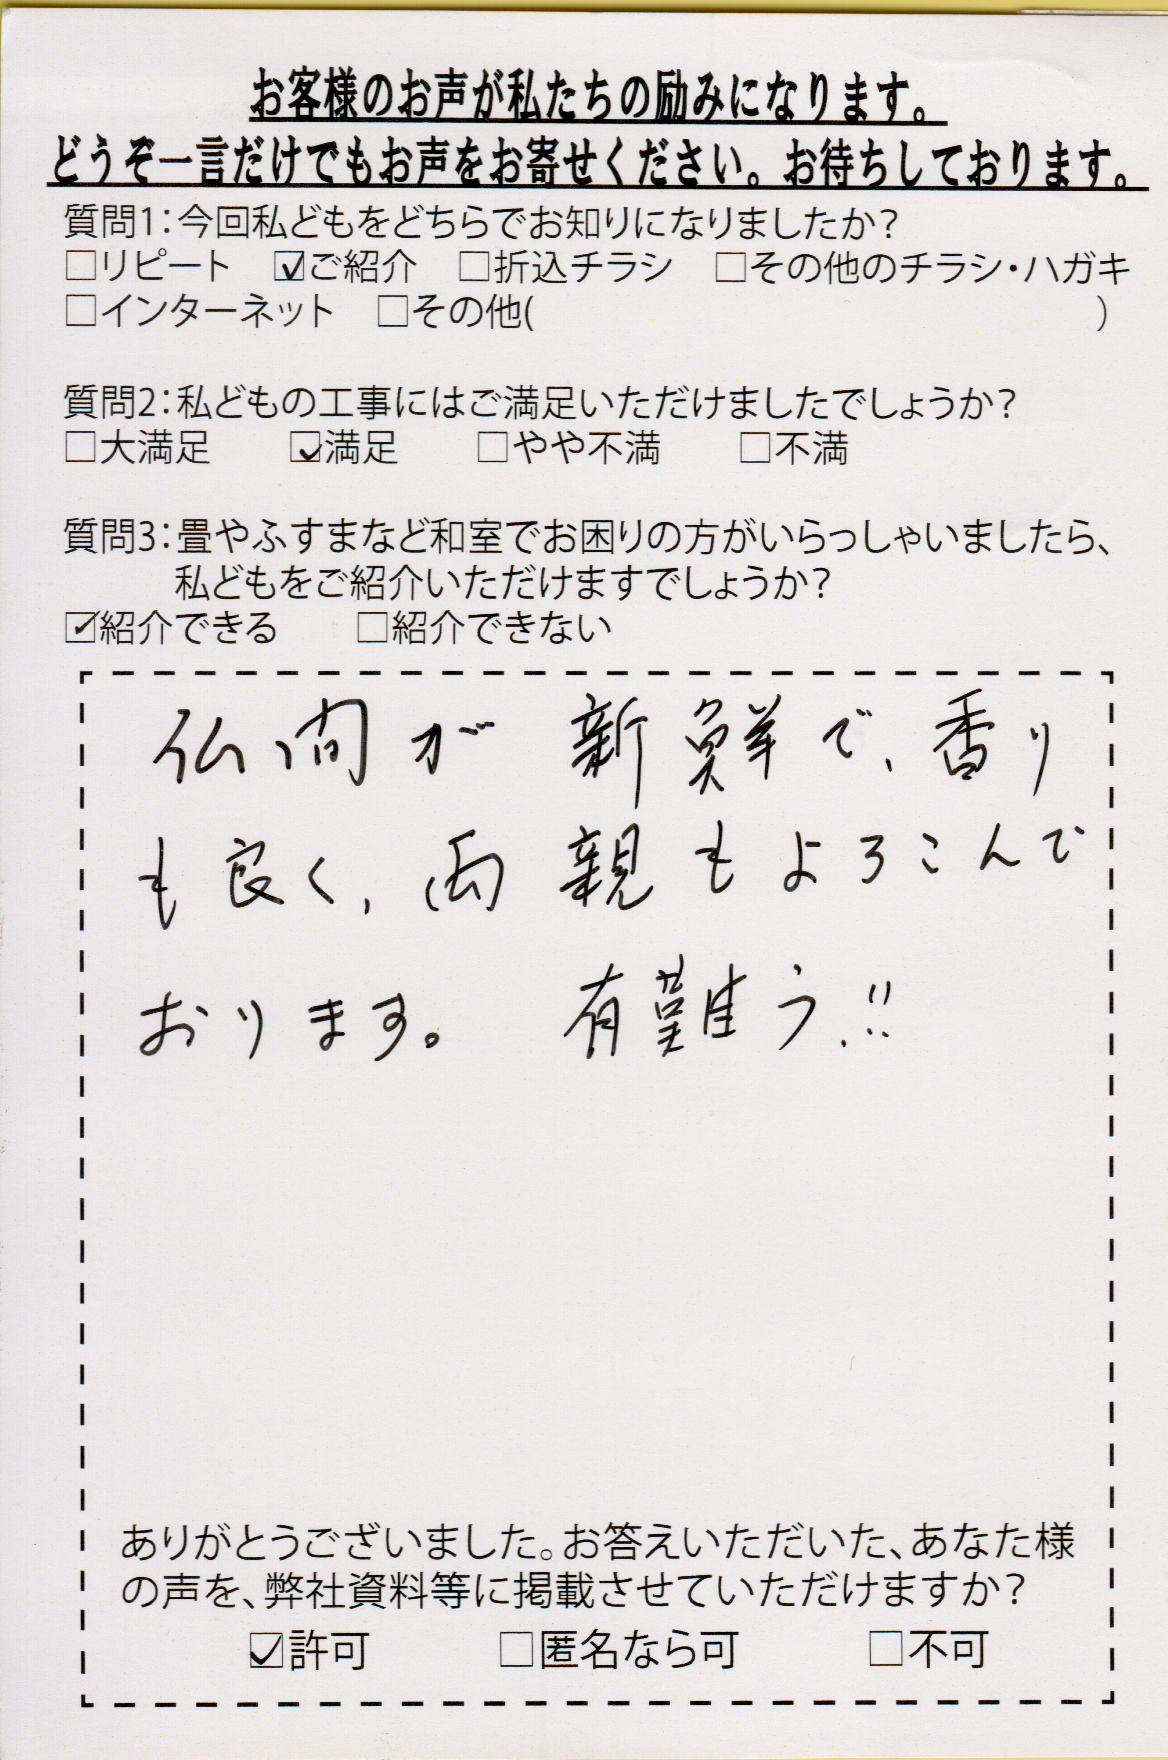 お客様のお声が私たちの励みになります。
どうぞ一言だけでもお声をお寄せください。お待ちしております。
質問1：今回私どもをどちらでお知りになりましたか？
□リピート　☑ご紹介　□折込チラシ　□その他のチラシ・ハガキ
□インターネット　□その他(　　　　　　　　　　　　　　　)
質問2：私どもの工事にはご満足いただけましたでしょうか？
□大満足　☑満足　□やや不満　□不満
質問3：畳やふすまなど和室でお困りの方がいらっしゃいましたら、
私どもをご紹介いただけますでしょうか？
☑紹介できる　□紹介できない
仏間が 新鮮で、香り
も良く、両親もよろこんで
おります。　有難う!!
ありがとうございました。お答えいただいた、あなた様
の声を、弊社資料等に掲載させていただけますか？
☑許可　□匿名なら可　□不可